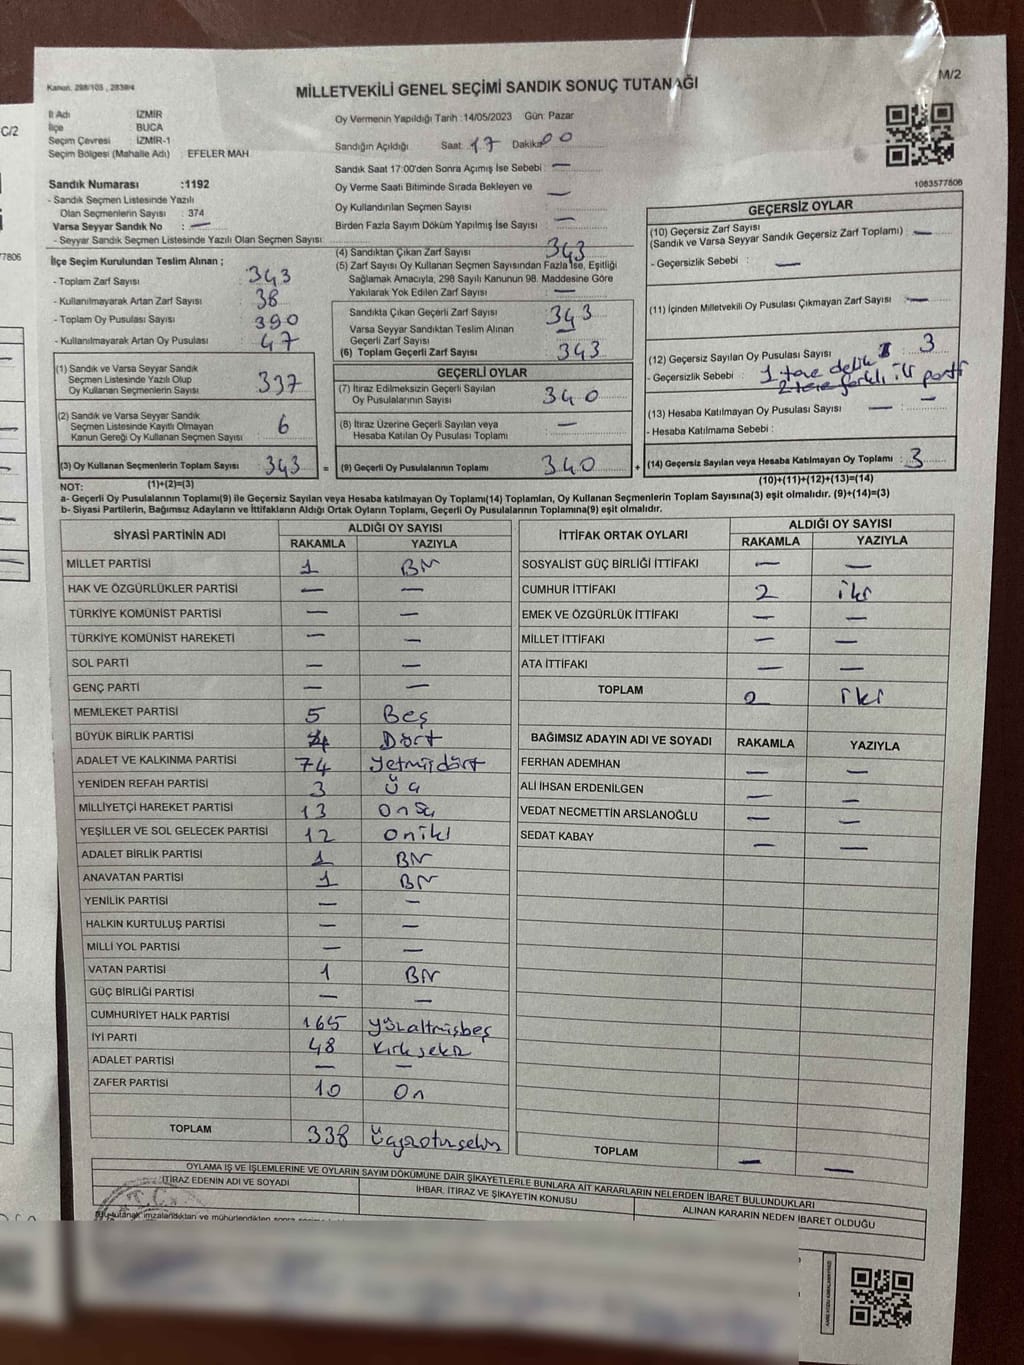 Kanun, 298/103 , 2839/4
MİLLETVEKİLİ GENEL SEÇİMİ SANDIK SONUÇ TUTANAĞI
M/2
C/2
İl Adı İZMİR
İlçe BUCA
Seçim Çevresi İZMİR-1
Seçim Bölgesi (Mahalle Adı) : EFELER MAH
Sandık Numarası :1192
- Sandık Seçmen Listesinde Yazılı
Olan Seçmenlerin Sayısı : 374
Varsa Seyyar Sandık No : —
- Seyyar Sandık Seçmen Listesinde Yazılı Olan Seçmen Sayısı
Oy Vermenin Yapıldığı Tarih :14/05/2023 Gün: Pazar
Sandığın Açıldığı Saat: 17 Dakika 00
Sandık Saat 17:00'den Sonra Açımış İse Sebebi : —
Oy Verme Saati Bitiminde Sırada Bekleyen ve
Oy Kullandırılan Seçmen Sayısı —
Birden Fazla Sayım Döküm Yapılmış İse Sayısı : —
1083577806
77806
İlçe Seçim Kurulundan Teslim Alınan ;
- Toplam Zarf Sayısı : 343
- Kullanılmayarak Artan Zarf Sayısı : 38
- Toplam Oy Pusulası Sayısı : 390
- Kullanılmayarak Artan Oy Pusulası : 47
(1) Sandık ve Varsa Seyyar Sandık
Seçmen Listesinde Yazılı Olup
Oy Kullanan Seçmenlerin Sayısı 337
(2) Sandık ve Varsa Seyyar Sandık
Seçmen Listesinde Kayıtlı Olmayan
Kanun Gereği Oy Kullanan Seçmen Sayısı 6
(3) Oy Kullanan Seçmenlerin Toplam Sayısı 343 =
(1)+(2)=(3)
(4) Sandıktan Çıkan Zarf Sayısı 343
(5) Zarf Sayısı Oy Kullanan Seçmen Sayısından Fazla İse, Eşitliği
Sağlamak Amacıyla, 298 Sayılı Kanunun 98. Maddesine Göre
Yakılarak Yok Edilen Zarf Sayısı —
Sandıkta Çıkan Geçerli Zarf Sayısı 343
Varsa Seyyar Sandıktan Teslim Alınan
Geçerli Zarf Sayısı —
(6) Toplam Geçerli Zarf Sayısı 343
GEÇERLİ OYLAR
(7) İtiraz Edilmeksizin Geçerli Sayılan
Oy Pusulalarının Sayısı 340
(8) İtiraz Üzerine Geçerli Sayılan veya
Hesaba Katılan Oy Pusulası Toplamı —
(9) Geçerli Oy Pusulalarının Toplamı 340 +
GEÇERSİZ OYLAR
(10) Geçersiz Zarf Sayısı
(Sandık ve Varsa Seyyar Sandık Geçersiz Zarf Toplamı) —
- Geçersizlik Sebebi : —
(11) İçinden Milletvekili Oy Pusulası Çıkmayan Zarf Sayısı —
(12) Geçersiz Sayılan Oy Pusulası Sayısı 3
- Geçersizlik Sebebi : 1 tane delik
2 tane farklı iki parti
(13) Hesaba Katılmayan Oy Pusulası Sayısı —
- Hesaba Katılmama Sebebi :
(14) Geçersiz Sayılan veya Hesaba Katılmayan Oy Toplamı 3
(10)+(11)+(12)+(13)=(14)
NOT:
a- Geçerli Oy Pusulalarının Toplamı(9) ile Geçersiz Sayılan veya Hesaba katılmayan Oy Toplamı(14) Toplamları, Oy Kullanan Seçmenlerin Toplam Sayısına(3) eşit olmalıdır. (9)+(14)=(3)
b- Siyasi Partilerin, Bağımsız Adayların ve İttifakların Aldığı Ortak Oyların Toplamı, Geçerli Oy Pusulalarının Toplamına(9) eşit olmalıdır.
SİYASİ PARTİNİN ADI ALDIĞI OY SAYISI
RAKAMLA YAZIYLA
MİLLET PARTİSİ 1 Bir
HAK VE ÖZGÜRLÜKLER PARTİSİ — —
TÜRKİYE KOMÜNİST PARTİSİ — —
TÜRKİYE KOMÜNİST HAREKETİ — —
SOL PARTİ — —
GENÇ PARTİ — —
MEMLEKET PARTİSİ 5 Beş
BÜYÜK BİRLİK PARTİSİ 4 Dört
ADALET VE KALKINMA PARTİSİ 74 Yetmişdört
YENİDEN REFAH PARTİSİ 3 Üç
MİLLİYETÇİ HAREKET PARTİSİ 13 Onüç
YEŞİLLER VE SOL GELECEK PARTİSİ 12 Oniki
ADALET BİRLİK PARTİSİ 1 Bir
ANAVATAN PARTİSİ 1 Bir
YENİLİK PARTİSİ — —
HALKIN KURTULUŞ PARTİSİ — —
MİLLİ YOL PARTİSİ — —
VATAN PARTİSİ 1 Bir
GÜÇ BİRLİĞİ PARTİSİ — —
CUMHURİYET HALK PARTİSİ 165 Yüzaltmışbeş
İYİ PARTİ 48 Kırksekiz
ADALET PARTİSİ — —
ZAFER PARTİSİ 10 On
TOPLAM 338 Üçyüzotuzsekiz
İTTİFAK ORTAK OYLARI ALDIĞI OY SAYISI
RAKAMLA YAZIYLA
SOSYALİST GÜÇ BİRLİĞİ İTTİFAKI — —
CUMHUR İTTİFAKI 2 iki
EMEK VE ÖZGÜRLÜK İTTİFAKI — —
MİLLET İTTİFAKI — —
ATA İTTİFAKI — —
TOPLAM 2 iki
BAĞIMSIZ ADAYIN ADI VE SOYADI RAKAMLA YAZIYLA
FERHAN ADEMHAN — —
ALİ İHSAN ERDENİLGEN — —
VEDAT NECMETTİN ARSLANOĞLU — —
SEDAT KABAY — —
TOPLAM — —
OYLAMA İŞ VE İŞLEMLERİNE VE OYLARIN SAYIM DÖKÜMÜNE DAİR ŞİKAYETLERLE BUNLARA AİT KARARLARIN NELERDEN İBARET BULUNDUKLARI
İTİRAZ EDENİN ADI VE SOYADI İHBAR, İTİRAZ VE ŞİKAYETİN KONUSU ALINAN KARARIN NEDEN İBARET OLDUĞU
T.C.
tutanak imzalandıktan ve mühürlendikten sonra